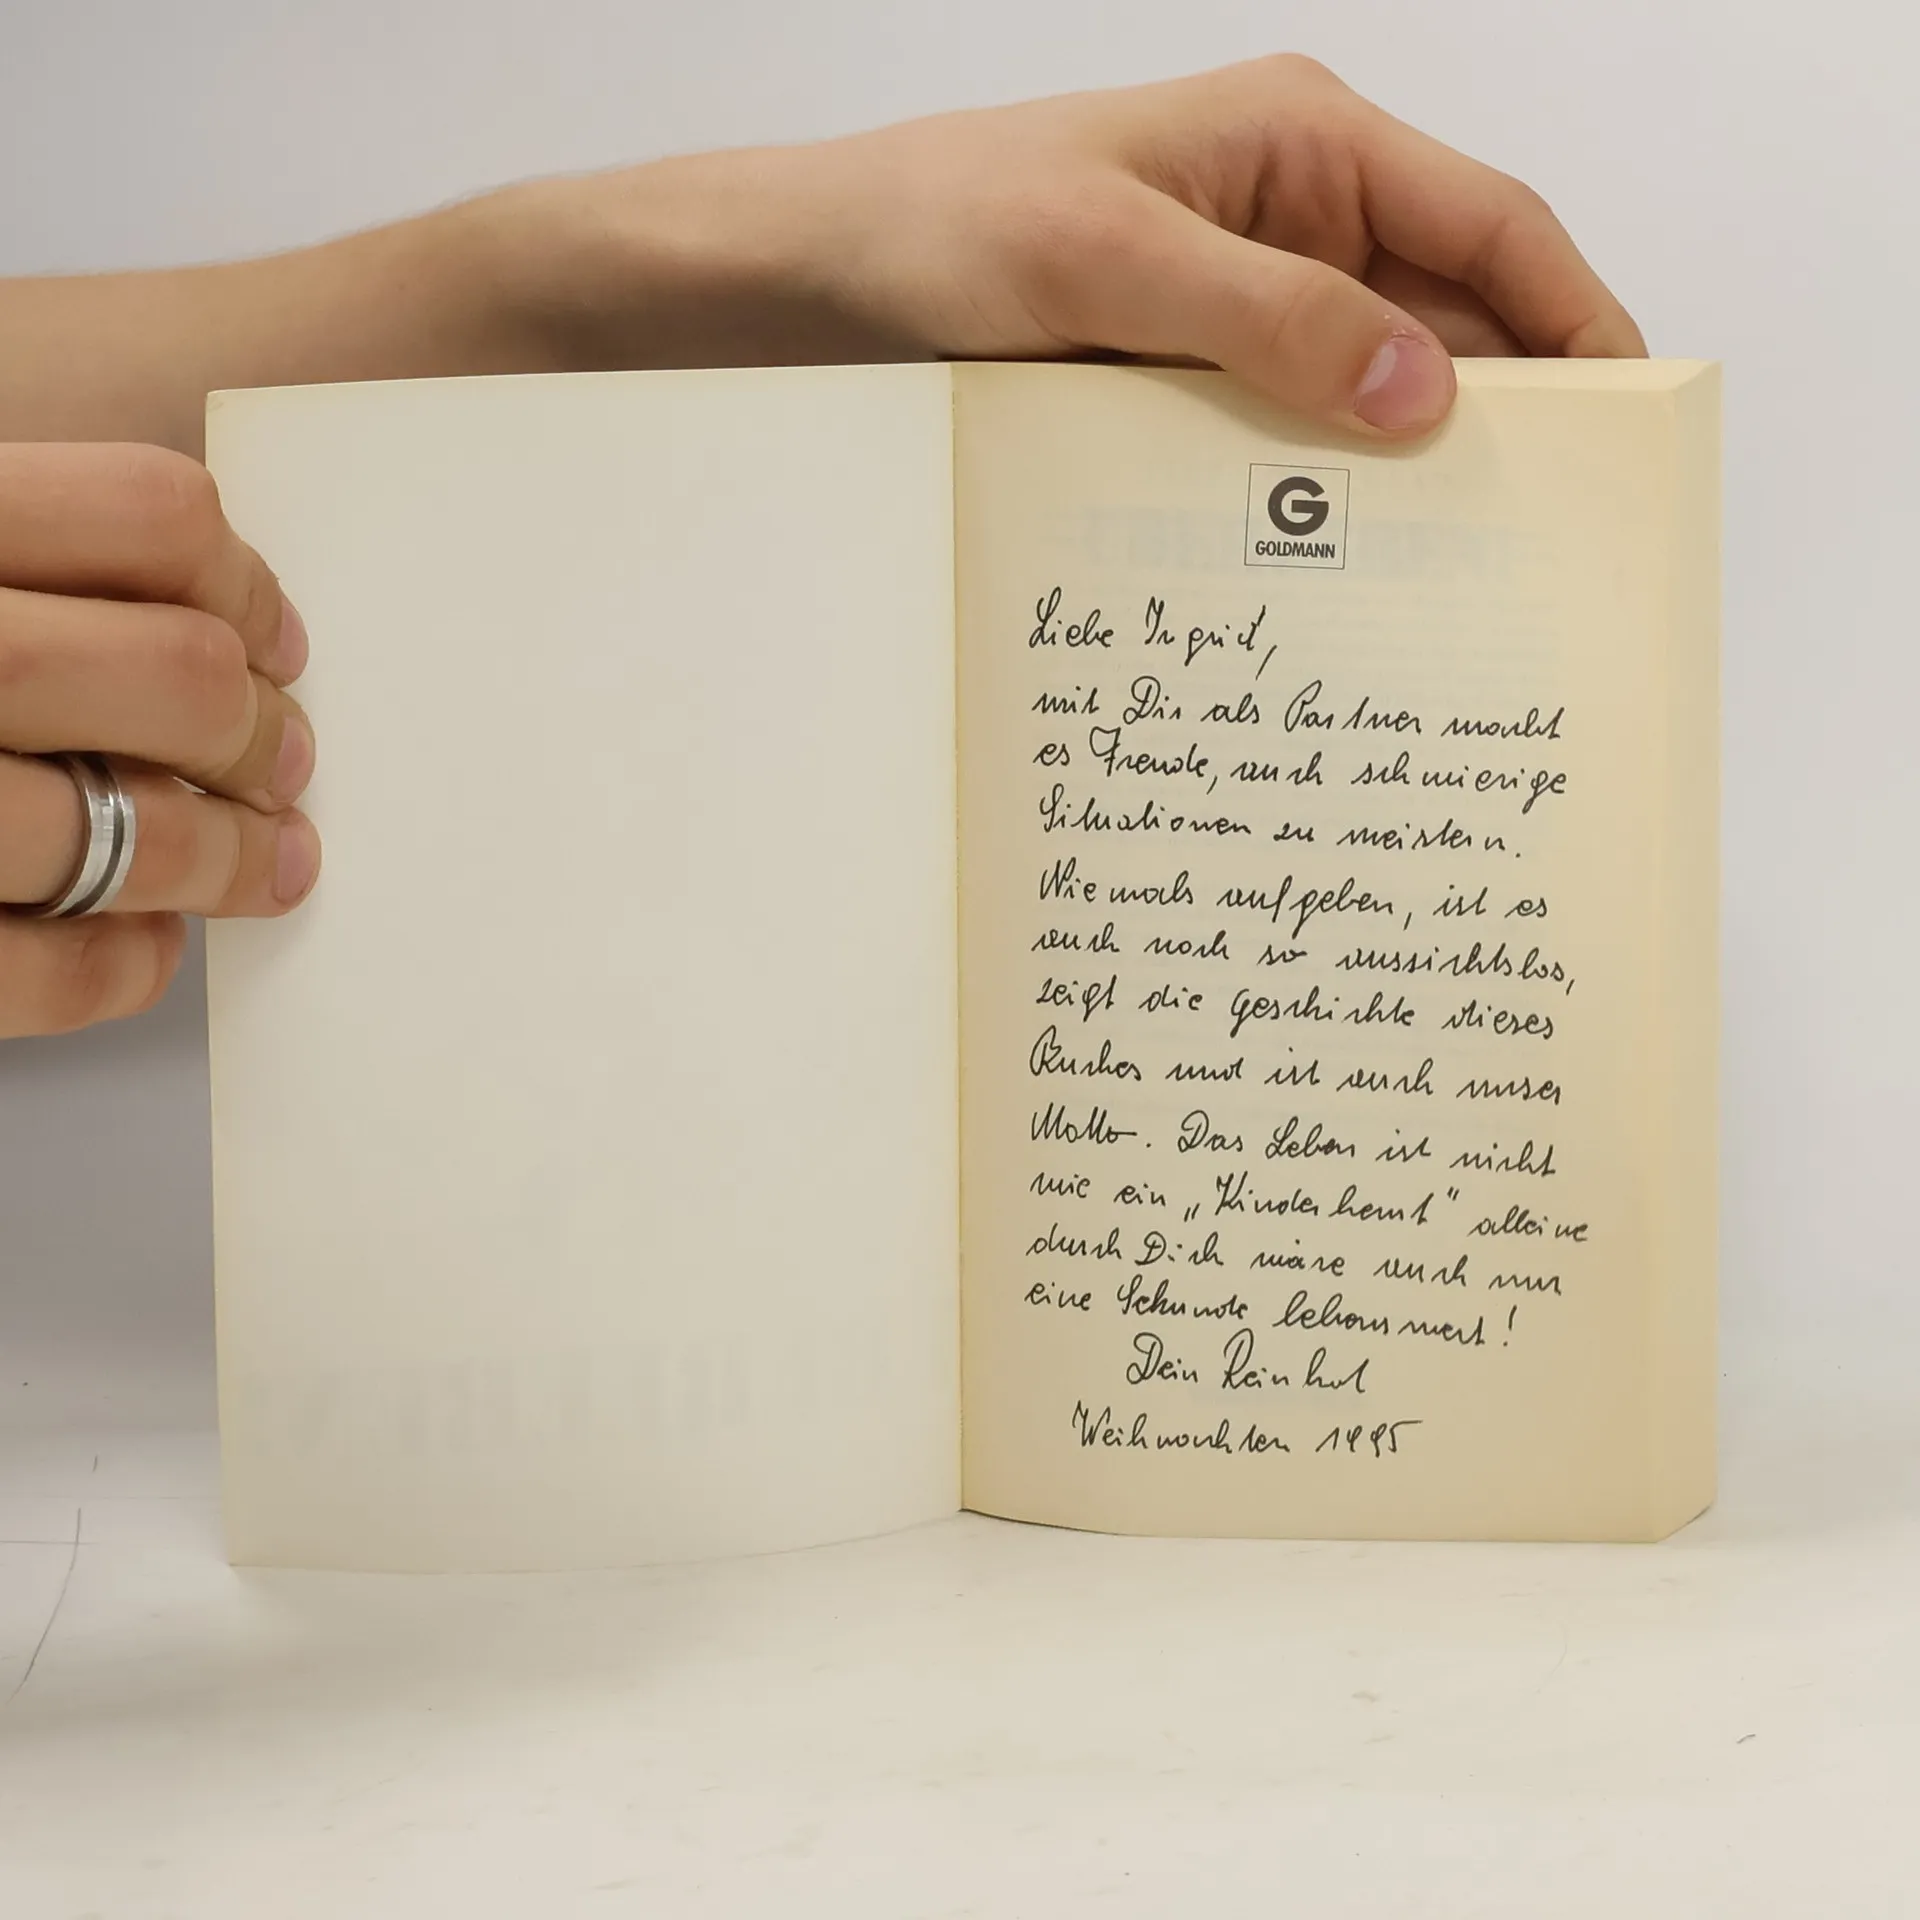 G
GOLDMANN
Liebe Ingrid,
mit Dir als Partner macht
es Freude, auch schwierige
Situationen zu meistern.
Niemals aufgeben, ist es
auch noch so aussichtslos,
zeigt die Geschichte dieses
Buches und ist auch unser
Motto. Das Leben ist nicht
wie ein „Kinderhemd“ alleine
durch Dich wäre auch nur
eine Sekunde lebenswert!
Dein Reinhol
Weihnachten 1995